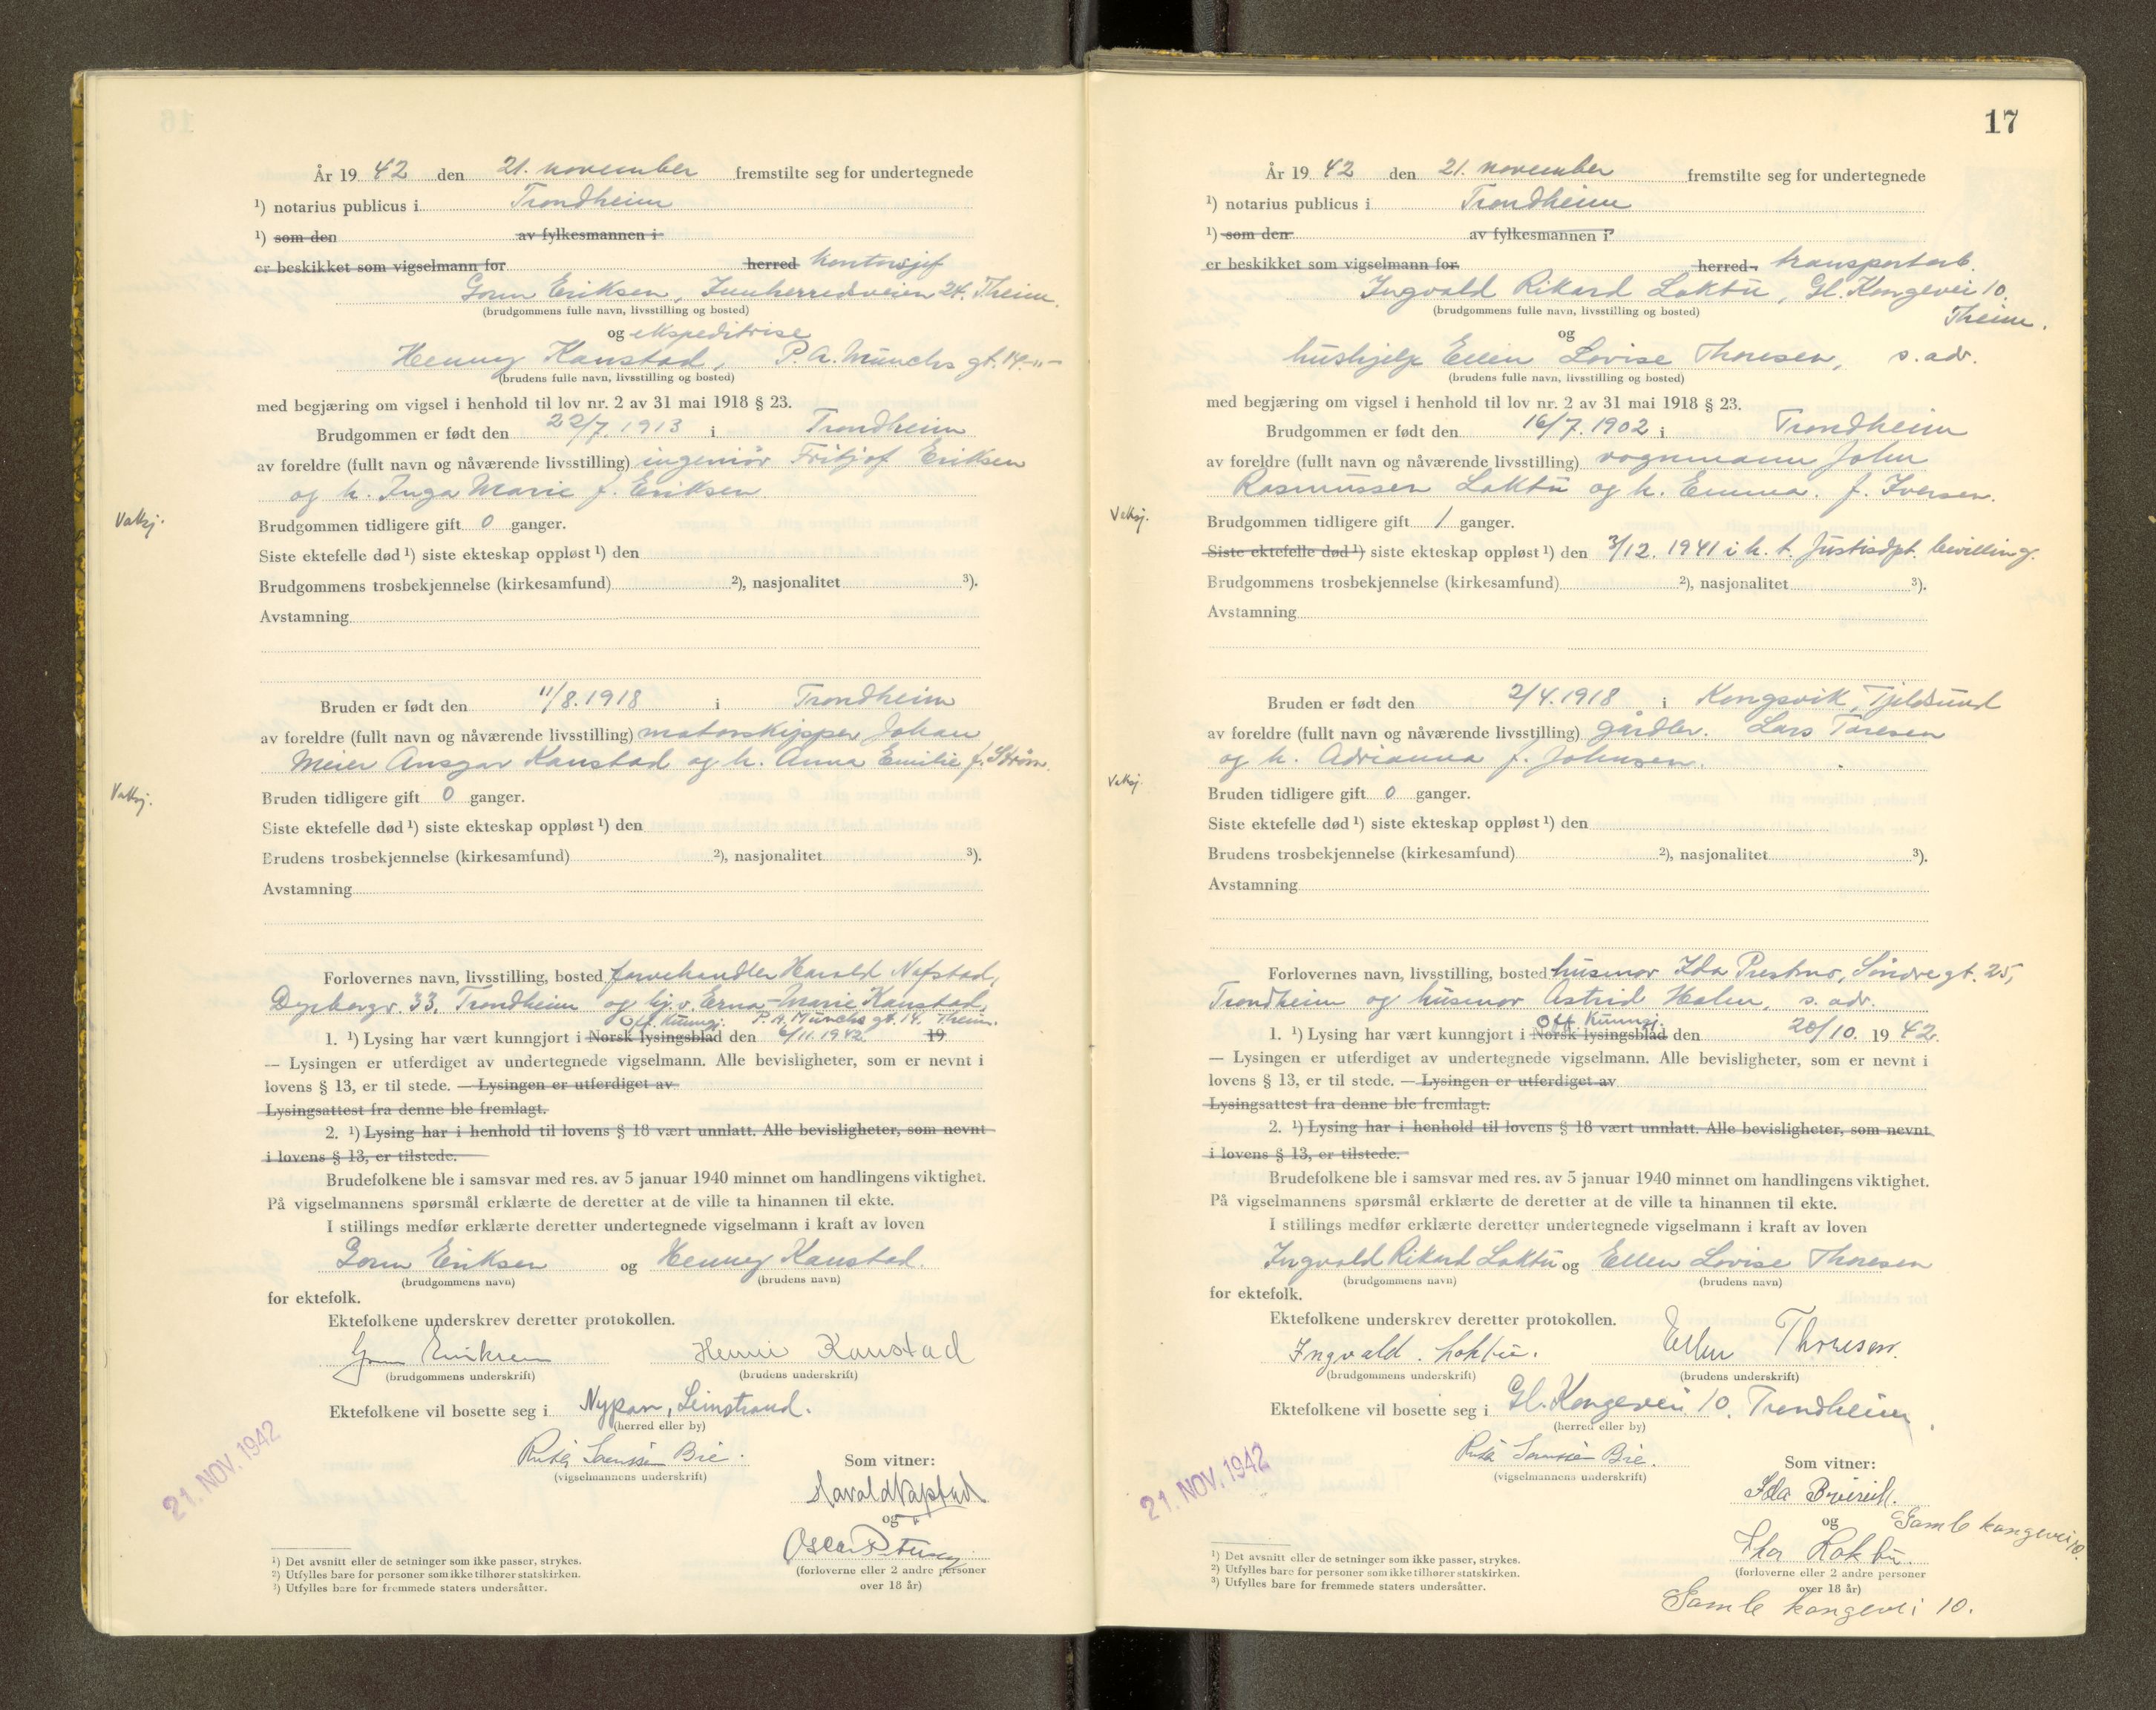 År 19 42 den 21. november fremstilte seg for undertegnede
¹) notarius publicus i Trondheim
¹) som den av fylkesmannen i
er beskikket som vigselmann for herred kontorsjef
Gorm Eriksen, Innherredsveien 24. Theim.
(brudgommens fulle navn, livsstilling og bosted)
og ekspeditrise
Henny Kanstad, P. A. Munchs gt. 14. -"-
(brudens fulle navn, livsstilling og bosted)
med begjæring om vigsel i henhold til lov nr. 2 av 31 mai 1918 § 23.
Brudgommen er født den 22/7. 1913 i Trondheim
av foreldre (fullt navn og nåværende livsstilling) ingeniør Fritjof Eriksen
og h. Inga Marie f. Eriksen
Vaksj.
Brudgommen tidligere gift 0 ganger.
Siste ektefelle død ¹) siste ekteskap oppløst ¹) den
Brudgommens trosbekjennelse (kirkesamfund) ²), nasjonalitet ³).
Avstamning
Bruden er født den 11/8. 1918 i Trondheim
av foreldre (fullt navn og nåværende livsstilling) motorskipper Johan
Meier Ansgar Kanstad og h. Anna Emilie f. Strøm.
Vaksj.
Bruden tidligere gift 0 ganger.
Siste ektefelle død ¹) siste ekteskap oppløst ¹) den
Brudens trosbekjennelse (kirkesamfund) ²), nasjonalitet ³).
Avstamning
Forlovernes navn, livsstilling, bosted farvehandler Harald Nafstad,
Dyrborgv. 33, Trondheim og hj.v. Erna-Marie Kanstad,
Off. Kunngj. P. A. Munchs gt. 14. Theim.
1. ¹) Lysing har vært kunngjort i Norsk lysingsblad den 6/11. 1942 19
— Lysingen er utferdiget av undertegnede vigselmann. Alle bevisligheter, som er nevnt i
lovens § 13, er til stede. — Lysingen er utferdiget av
Lysingsattest fra denne ble fremlagt.
2. ¹) Lysing har i henhold til lovens § 18 vært unnlatt. Alle bevisligheter, som nevnt
i lovens § 13, er tilstede.
Brudefolkene ble i samsvar med res. av 5 januar 1940 minnet om handlingens viktighet.
På vigselmannens spørsmål erklærte de deretter at de ville ta hinannen til ekte.
I stillings medfør erklærte deretter undertegnede vigselmann i kraft av loven
Gorm Eriksen og Henny Kanstad.
(brudgommens navn) (brudens navn)
for ektefolk.
Ektefolkene underskrev deretter protokollen.
Gorm Eriksen Henni Kanstad
(brudgommens underskrift) (brudens underskrift)
Ektefolkene vil bosette seg i Nypan, Leinstrand.
(herred eller by)
21. NOV. 1942
Ruth Sørenssen Bie.
(vigselmannens underskrift)
Som vitner:
Harald Nafstad
og
Oscar
(forloverne eller 2 andre personer
over 18 år)
¹) Det avsnitt eller de setninger som ikke passer, strykes.
²) Utfylles bare for personer som ikke tilhører statskirken.
³) Utfylles bare for fremmede staters undersåtter.
17
År 19 42 den 21. november fremstilte seg for undertegnede
¹) notarius publicus i Trondheim
¹) som den av fylkesmannen i
er beskikket som vigselmann for herred transportarb.
Ingvald Rikard Loktu, Gl. Kongevei 10,
(brudgommens fulle navn, livsstilling og bosted) Theim.
og
hushjelp Ellen Lovise Thoresen, s. adr.
(brudens fulle navn, livsstilling og bosted)
med begjæring om vigsel i henhold til lov nr. 2 av 31 mai 1918 § 23.
Brudgommen er født den 16/7. 1902 i Trondheim
av foreldre (fullt navn og nåværende livsstilling) vognmann John
Rasmussen Loktu og h. Emma. f. Iversen.
Vaksj.
Brudgommen tidligere gift 1 ganger.
Siste ektefelle død ¹) siste ekteskap oppløst ¹) den 3/12. 1941 i h. t. Justisdpt. bevilling.
Brudgommens trosbekjennelse (kirkesamfund) ²), nasjonalitet ³).
Avstamning
Bruden er født den 2/4. 1918 i Kongsvik, Tjeldsund
av foreldre (fullt navn og nåværende livsstilling) gårdbr. Lars Toresen
og h. Adrianna f. Johnsen.
Vaksj.
Bruden tidligere gift 0 ganger.
Siste ektefelle død ¹) siste ekteskap oppløst ¹) den
Brudens trosbekjennelse (kirkesamfund) ²), nasjonalitet ³).
Avstamning
Forlovernes navn, livsstilling, bosted husmor Ida Prestmo, Søndre gt. 25,
Trondheim og husmor Astrid Holm, s. adr.
Off Kunngj.
1. ¹) Lysing har vært kunngjort i Norsk lysingsblad den 20/10. 19 42.
— Lysingen er utferdiget av undertegnede vigselmann. Alle bevisligheter, som er nevnt i
lovens § 13, er til stede. — Lysingen er utferdiget av
Lysingsattest fra denne ble fremlagt.
2. ¹) Lysing har i henhold til lovens § 18 vært unnlatt. Alle bevisligheter, som nevnt
i lovens § 13, er tilstede.
Brudefolkene ble i samsvar med res. av 5 januar 1940 minnet om handlingens viktighet.
På vigselmannens spørsmål erklærte de deretter at de ville ta hinannen til ekte.
I stillings medfør erklærte deretter undertegnede vigselmann i kraft av loven
Ingvald Rikard Loktu og Ellen Lovise Thoresen
(brudgommens navn) (brudens navn)
for ektefolk.
Ektefolkene underskrev deretter protokollen.
Ingvald. Loktu. Ellen Thoresen.
(brudgommens underskrift) (brudens underskrift)
Ektefolkene vil bosette seg i Gl. Kongevei 10, Trondheim.
(herred eller by)
21. NOV. 1942
Ruth Sørenssen Bie.
(vigselmannens underskrift)
Som vitner:
Ida
og Gamle kongevei 10.
Thor Loktu.
(forloverne eller 2 andre personer
over 18 år)
Gamle kongevei 10.
¹) Det avsnitt eller de setninger som ikke passer, strykes.
²) Utfylles bare for personer som ikke tilhører statskirken.
³) Utfylles bare for fremmede staters undersåtter.